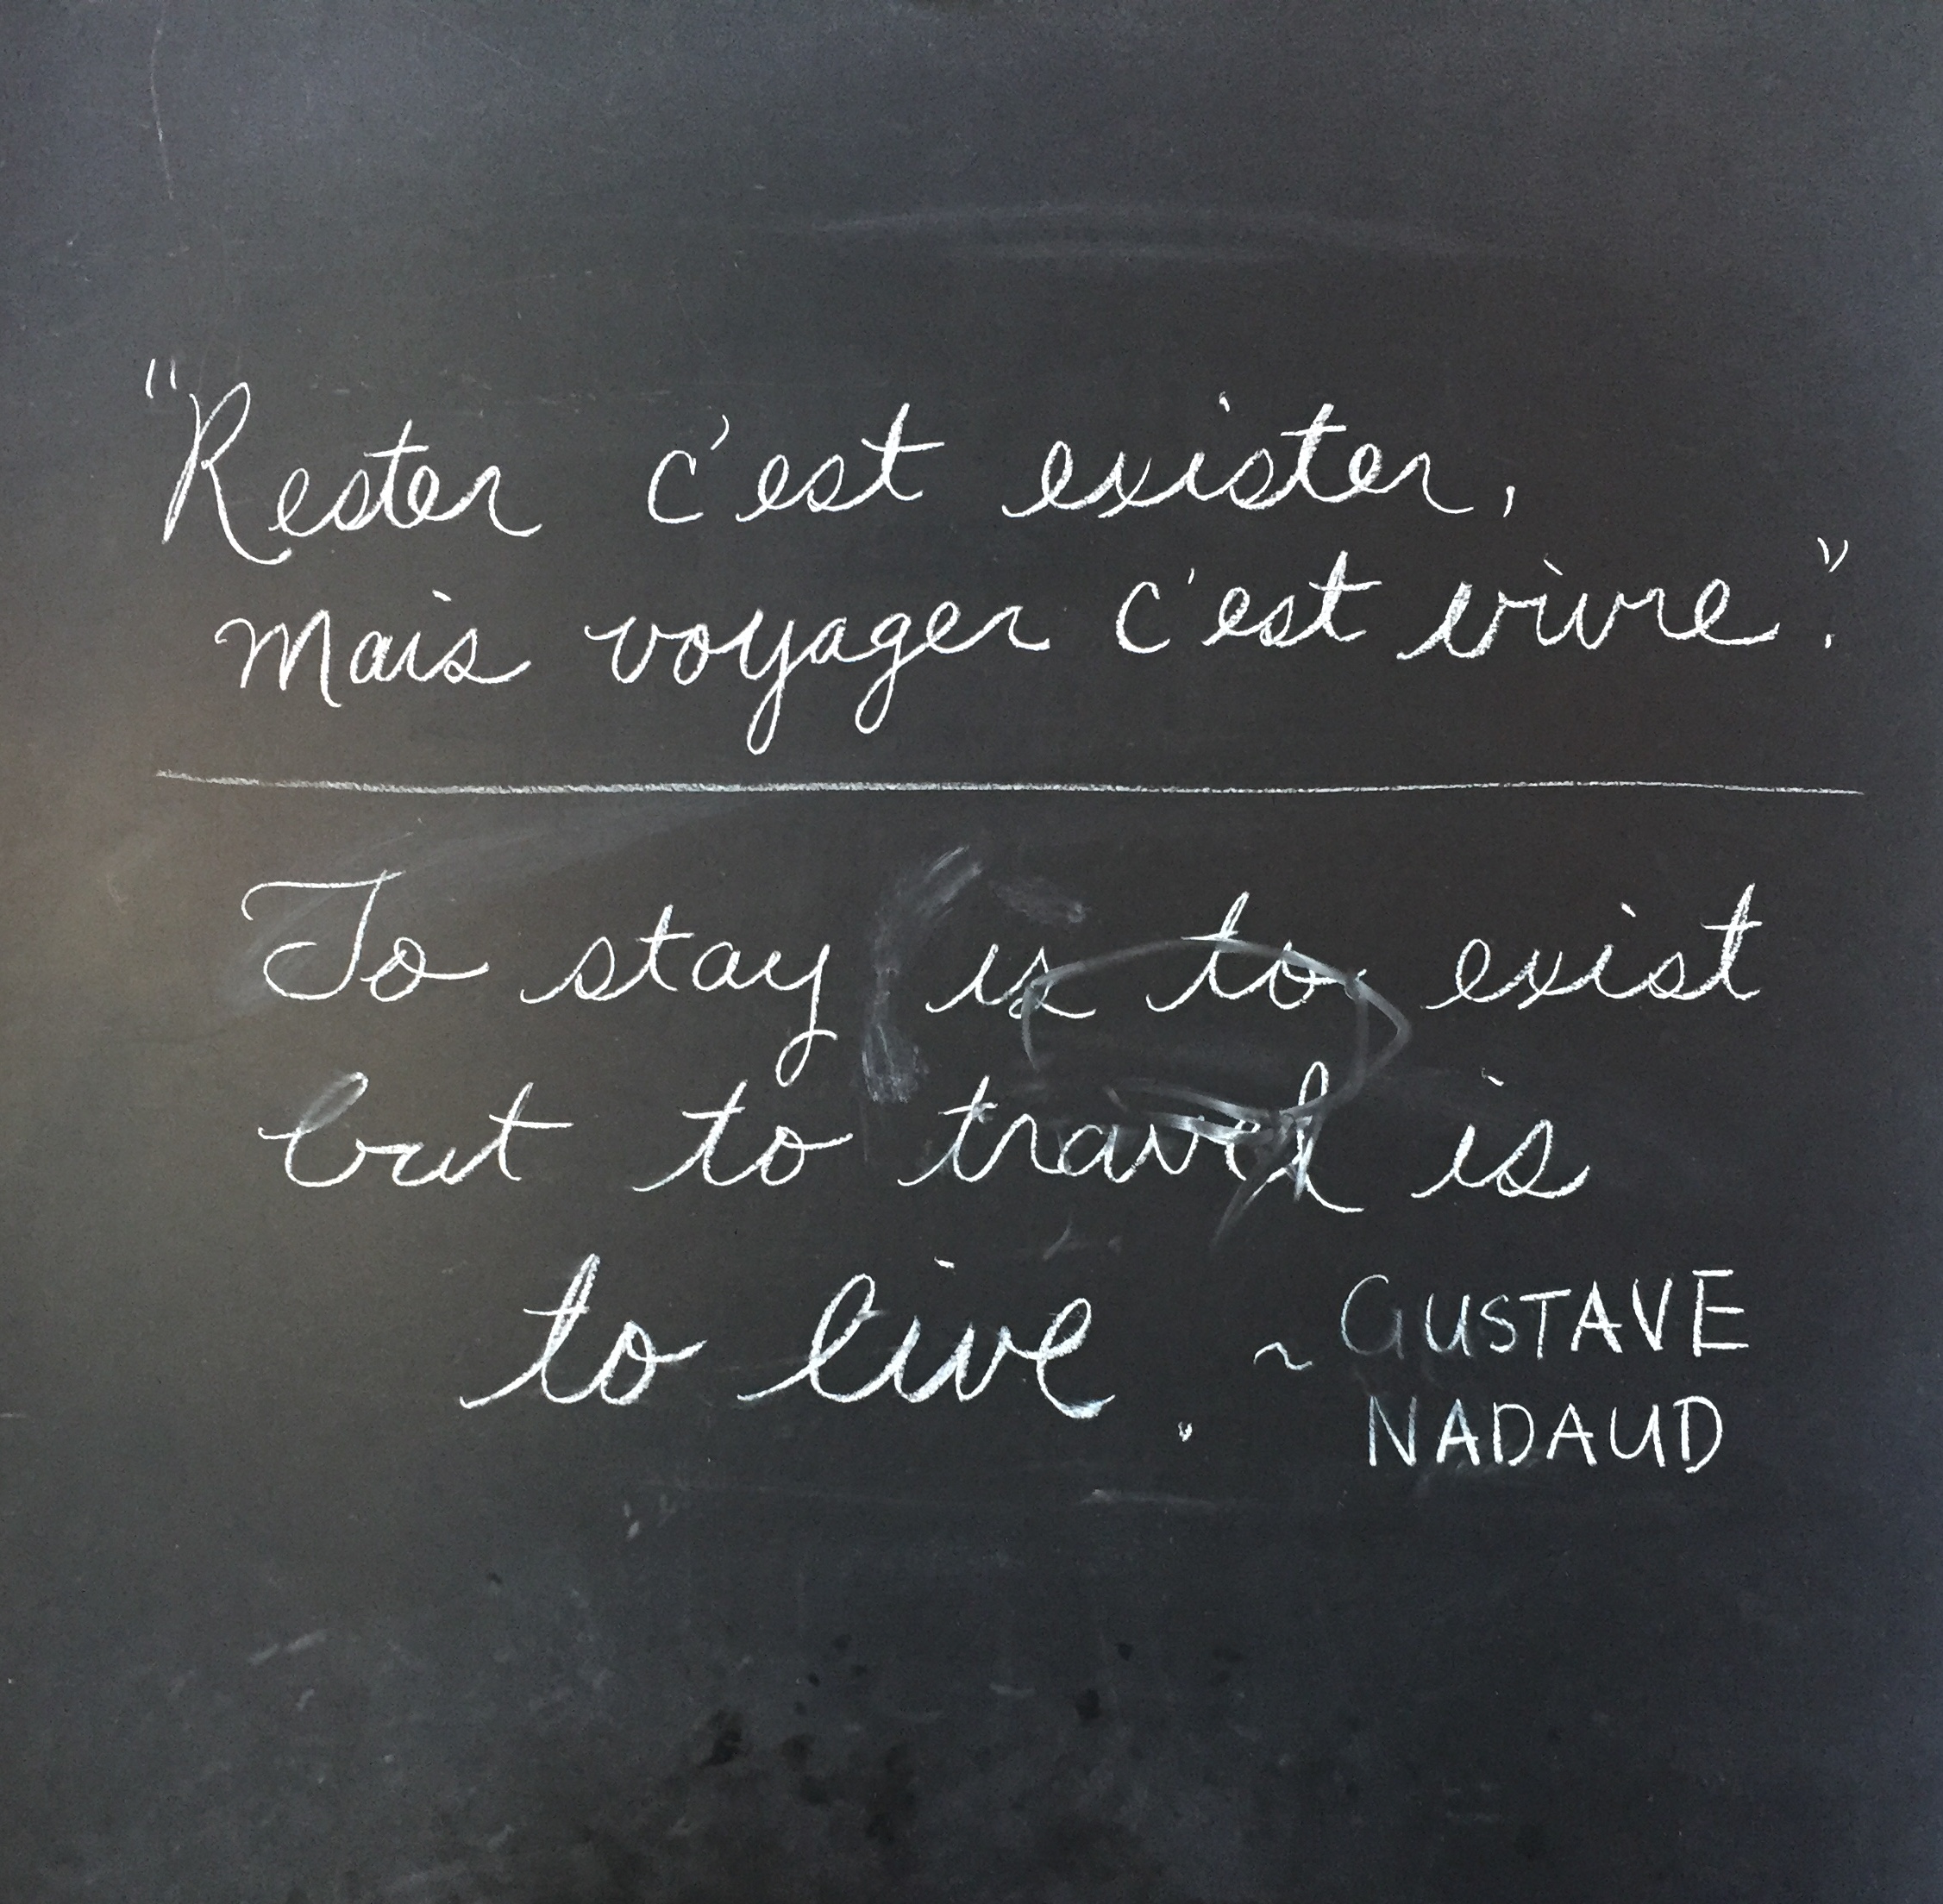 "Rester c'est exister,
mais voyager c'est vivre."
To stay is to exist
but to travel is
to live. ~ GUSTAVE
NADAUD